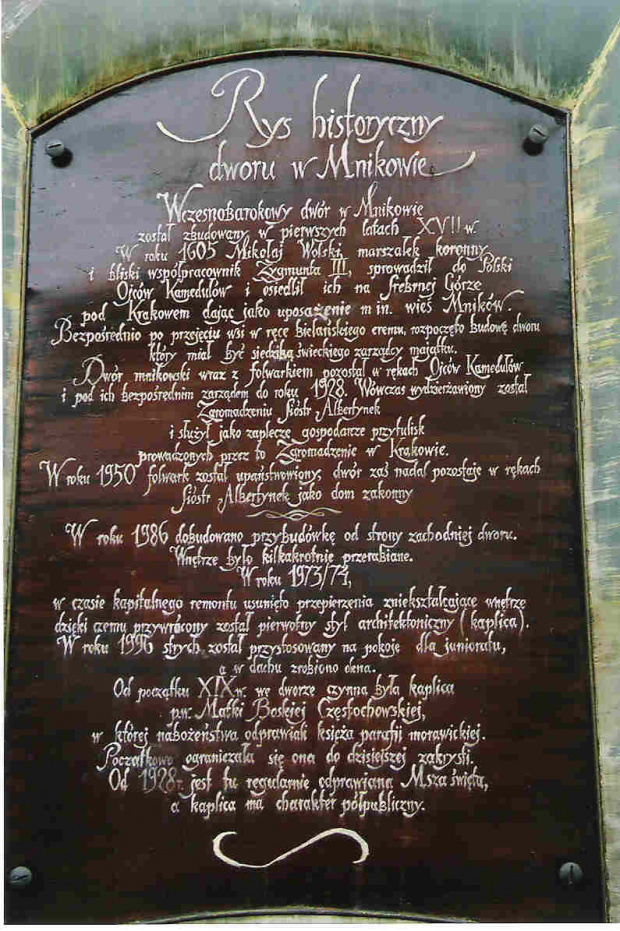 Rys historyczny
dworu w Mnikowie
Wczesnobarokowy dwór w Mnikowie
został zbudowany w pierwszych latach XVII w.
W roku 1605 Mikołaj Wolski, marszałek koronny
i bliski współpracownik Zygmunta III, sprowadził do Polski
Ojców Kamedułów i osiedlił ich na Srebrnej Górze
pod Krakowem dając jako uposażenie m.in. wieś Mników.
Bezpośrednio po przejęciu wsi w ręce bielańskiego eremu, rozpoczęto budowę dworu
który miał być siedzibą świeckiego zarządcy majątku.
Dwór mnikowski wraz z folwarkiem pozostał w rękach Ojców Kamedułów
i pod ich bezpośrednim zarządem do roku 1928. Wówczas wydzierżawiony został
Zgromadzeniu Sióstr Albertynek
i służył jako zaplecze gospodarcze przytulisk
prowadzonych przez to Zgromadzenie w Krakowie.
W roku 1950 folwark został upaństwowiony; dwór zaś nadal pozostaje w rękach
Sióstr Albertynek jako dom zakonny
W roku 1986 dobudowano przybudówkę od strony zachodniej dworu.
Wnętrze było kilkakrotnie przerabiane.
W roku 1973/74,
w czasie kapitalnego remontu usunięto przepierzenia zniekształcające wnętrze
dzięki czemu przywrócony został pierwotny styl architektoniczny (kaplica).
W roku 1996 strych został przystosowany na pokoje dla junioratu,
a w dachu zrobiono okna.
Od początku XIX w. we dworze czynna była kaplica
p.w. Matki Boskiej Częstochowskiej,
w której nabożeństwa odprawiali księża parafii morawickiej.
Początkowo ograniczała się ona do dzisiejszej zakrysti.
Od 1928 r. jest tu regularnie odprawiana Msza święta,
a kaplica ma charakter półpubliczny.